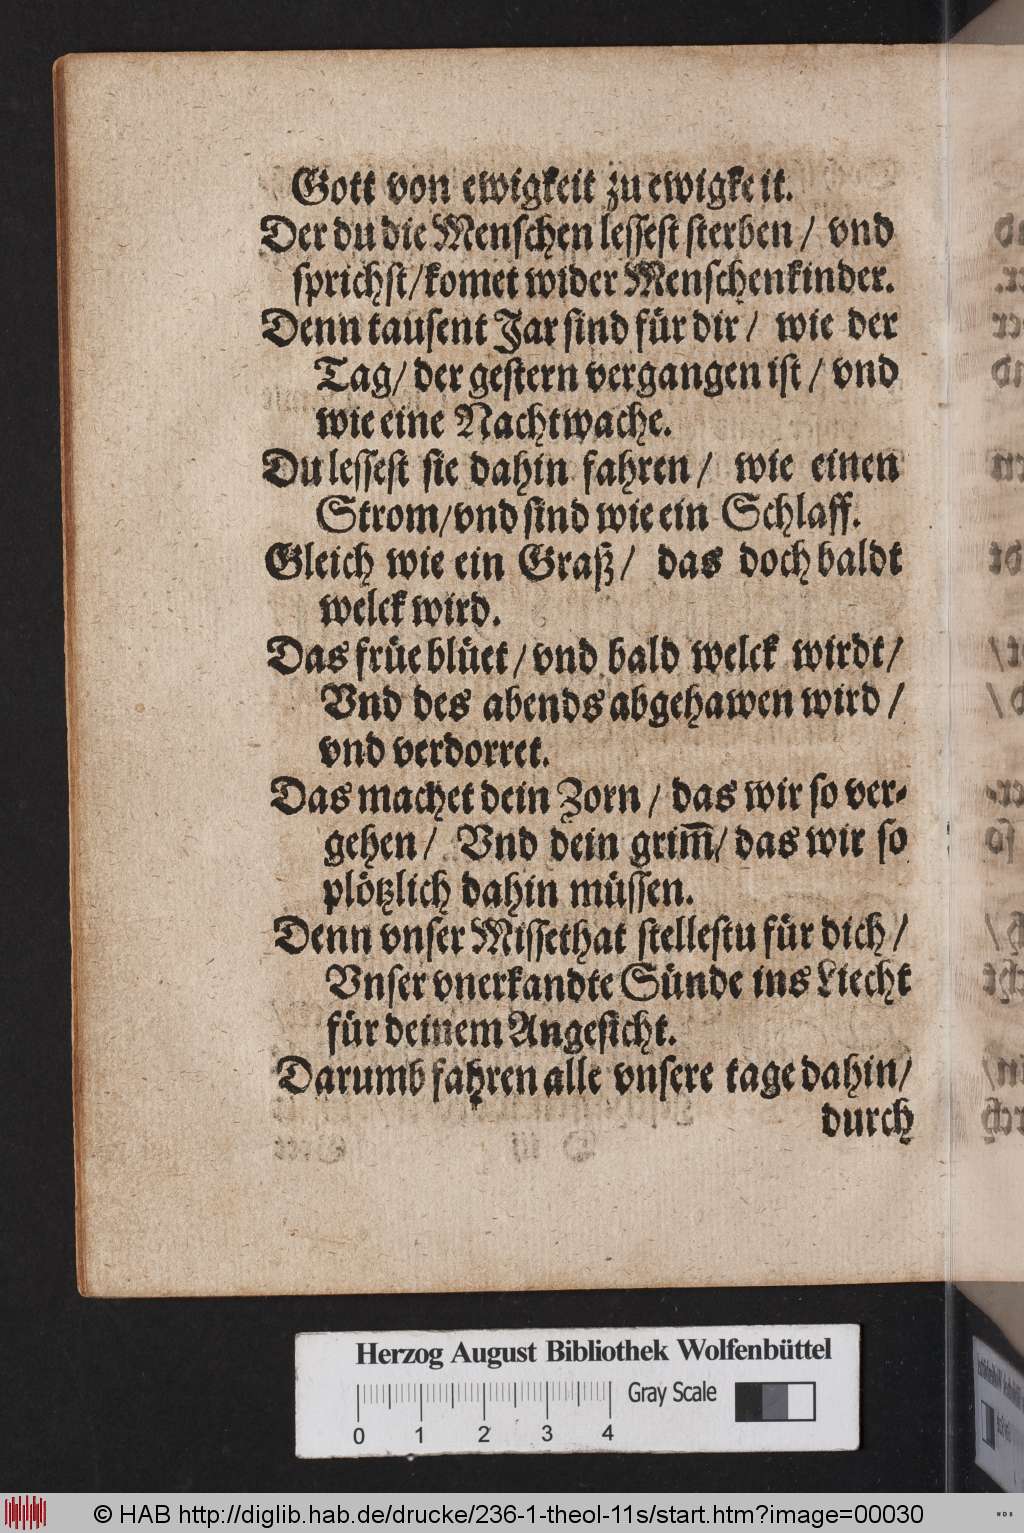 Gott von ewigkeit zu ewigkeit.
Der du die Menschen lessest sterben / vnd
sprichst/komet wider Menschenkinder.
Denn tausent Jar sind für dir / wie der
Tag/ der gestern vergangen ist / vnd
wie eine Nachtwache.
Du lessest sie dahin fahren / wie einen
Strom/vnd sind wie ein Schlaff.
Gleich wie ein Graß / das doch baldt
welck wird.
Das früe blüet / vnd bald welck wirdt /
Vnd des abends abgehawen wird /
vnd verdorret.
Das machet dein Zorn / das wir so ver-
gehen / Vnd dein grim̅/ das wir so
plötzlich dahin müssen.
Denn vnser Missethat stellestu für dich /
Vnser vnerkandte Sünde ins Liecht
für deinem Angesicht.
Darumb fahren alle vnsere tage dahin/
durch
Herzog August Bibliothek Wolfenbüttel
Gray Scale
0 1 2 3 4
© HAB http://diglib.hab.de/drucke/236-1-theol-11s/start.htm?image=00030